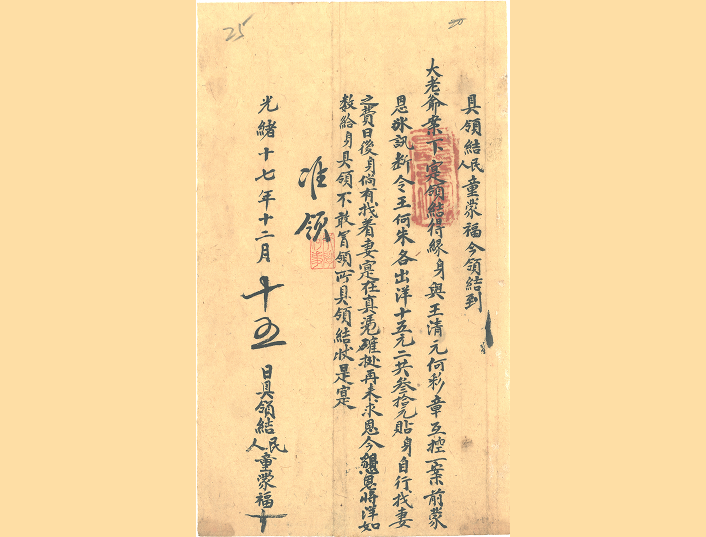 25
具領結民人童蒙福今領結到
大老爺案下寔領結得緣身與王清元何彩章互控一案前蒙
恩氷訊断令王何朱各出洋十五元二共叁拾元貼身自行找妻
之費日後身倘有找着妻寔在真憑確拠再来求恩今懇恩将洋如
数給身具領不敢冒領所具領結状是寔
准領
光緒十七年十二月十五日具領結民人童蒙福十